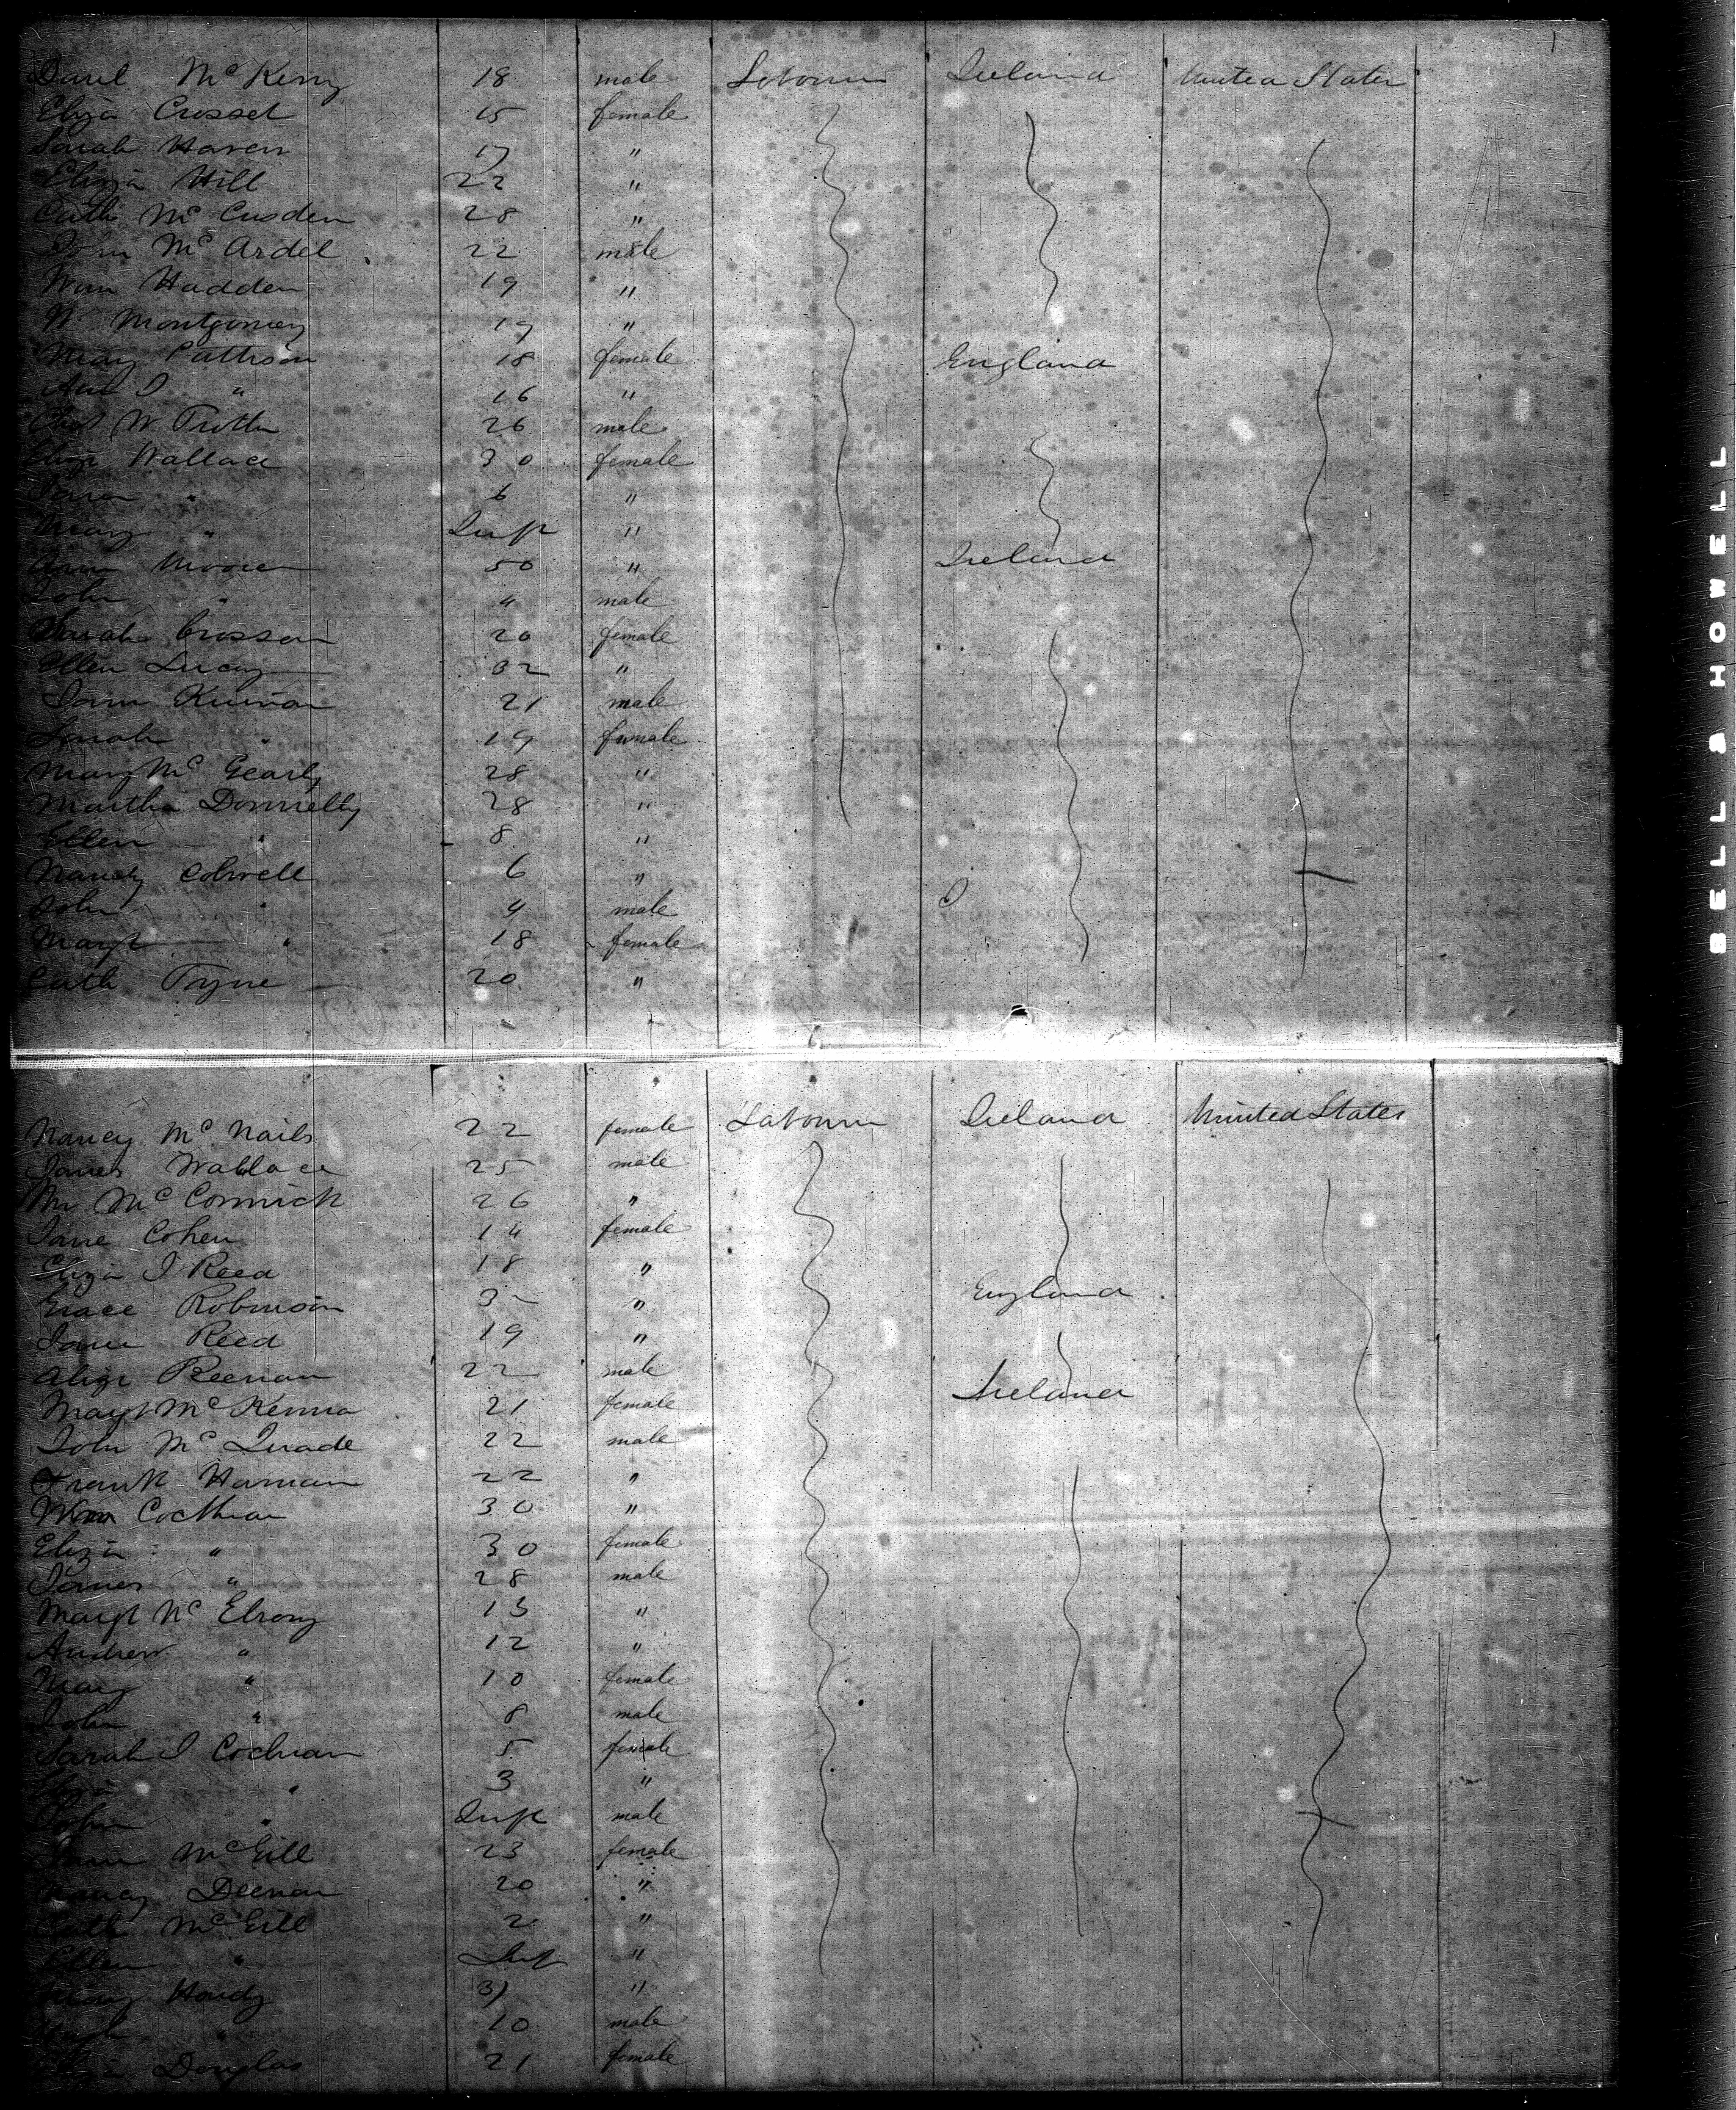 Danl McKenny 18 male Labourer Ireland United States
Eliza Crosset 15 female
Sarah Haven 17 "
Eliza Hill 22 "
Cath Mc Cusden 28 "
John Mc Ardel 22 male
Wm Hadden 19 "
N. Montgomery 19 "
Mary Pattison 18 female England
Ann J " 16 "
Chas W Trotter 26 male
Eliza Wallace 30 female
" 6 "
Mary " Inft "
Ann Moore 50 " Ireland
John " " male
Sarah Crossan 20 female
Ellen Lucay 32 "
21 male
Sarah " 19 female
Mary Mc Gearly 28 "
Martha Donnelly 28 "
Ellen " 8 "
Nancy Colwell 6 "
John " 9 male
Margt " 18 female
Cath Tyne 20 "
Nancy Mc Nails 22 female Labourer Ireland United States
James Wallace 25 male
Mc Cormick 26 "
Jane Cohen 14 female
Eliza J Reed 18 "
Grace Robinson 3 " England
Jane Reed 19 "
Keenan 22 male
Margt Mc Kenna 21 female Ireland
John Mc Quade 22 male
Frank Hanan 22 "
Wm Cochran 30 "
Eliza " 30 female
James " 28 male
Margt Mc Elroy 13 "
Andrew " 12 "
Mary " 10 female
John " 8 male
Sarah J Cochran 5 female
Eliza " 3 "
John " Inft male
McGill 23 female
Nancy Deenan 20 "
Cath McGill 2 "
Ellen " Inft "
Hardy 31 "
Hugh " 10 male
Eliza Douglas 21 female
BELL & HOWELL